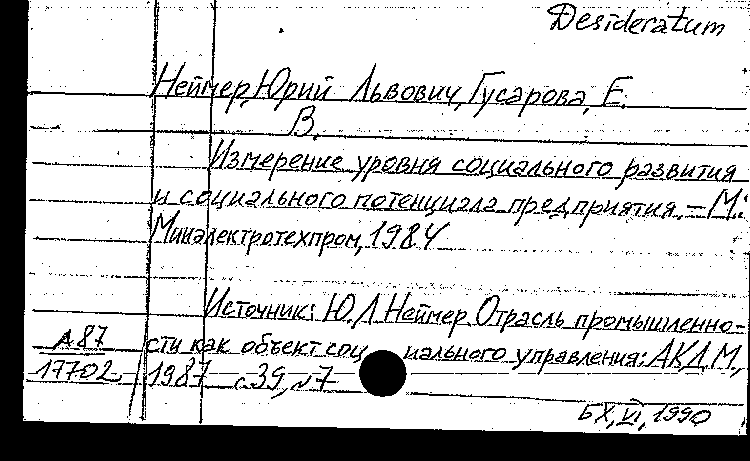 Desideratum
Неймер, Юрий Львович, Гусарова, Е.
В.
Измерение уровня социального развития
и социального потенциала предприятия. – М.:
Минэлектротехпром, 1984
Источник: Ю.Л. Неймер. Отрасль промышленно-
сти как объект социального управления: АКД М.,
А 87
17702
1987 с. 39, №7
БХ, VI, 1990